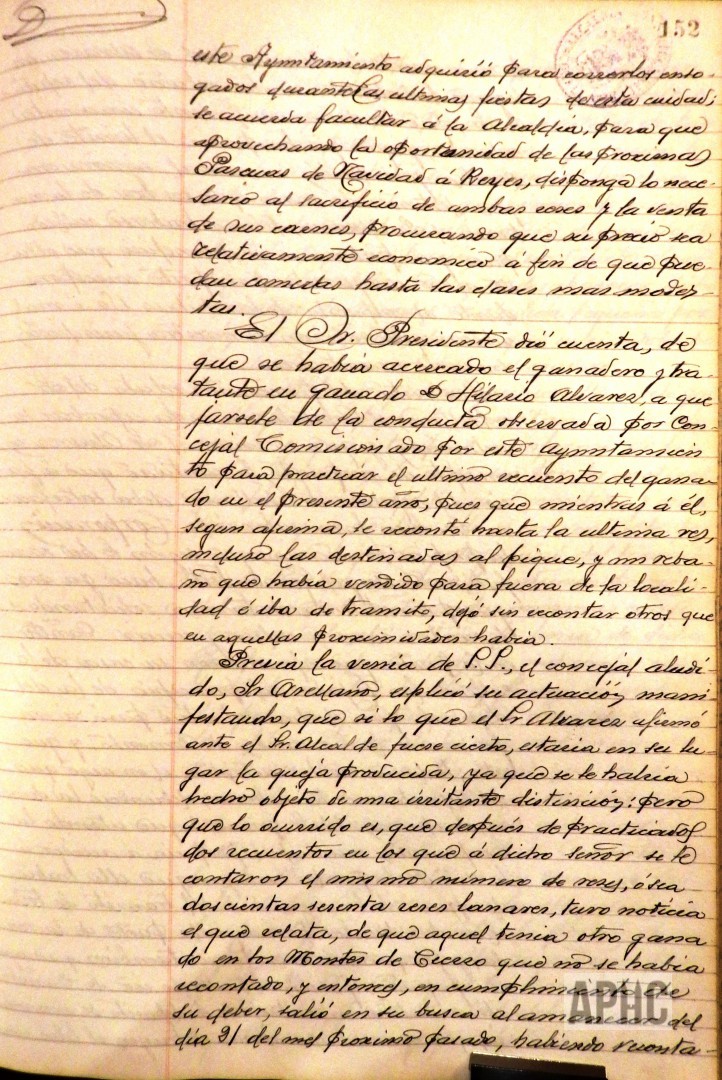 152
este Ayuntamiento adquirió para correrlos enso-
gados durante las ultimas fiestas de esta cuidad;
se acuerda facultar á la Alcaldia, para que
aprovechando la oportunidad de las proximas
Pascuas de Navidad á Reyes, disponga lo nece-
sario al sacrificio de ambas reses y la venta
de sus carnes, procurando que su precio sea
relativamente economico á fin de que pue-
dan comerlas hasta las clases mas modes-
tas.
El Sr. Presidente dió cuenta, de
que se habia acercado el ganadero y tra-
tante en ganado D Hilario Alvarez, a que
jarsele de la conducta observada por Con-
cejal Comisionado por este Ayuntamien
to para practicar el ultimo recuento del gana-
do en el presente año, pues que mientras á él,
segun afirma, se recontó hasta la ultima res,
incluso las destinadas al pique, y un reba-
ño que habia vendido para fuera de la locali-
dad é iba de tramite, dejó sin recontar otros que
en aquellas proximidades habia.
Previa la venia de S.S., el concejal aludi-
do, Sr Arellano, esplicó su actuación, mani
festando, que si lo que el Sr Alvarez afirmó
ante el Sr. Alcalde fuese cierto, estaria en su lu-
gar la queja producida, ya que se le habria
hecho objeto de una irritante distinción; pero
que lo ocurrido es, que después de practicados
dos recuentos en los que á dicho señor se le
contaron el mismo número de reses, ó sea
doscientas sesenta reses lanares, tuvo noticia
el que relata, de que aquel tenia otro gana
do en los Montes de Cierzo que no se habia
recontado, y entonces, en cumplimiento de
su deber, salió en su busca al amanecer del
dia 21 del mes proximo pasado, habiendo reconta-
APHC